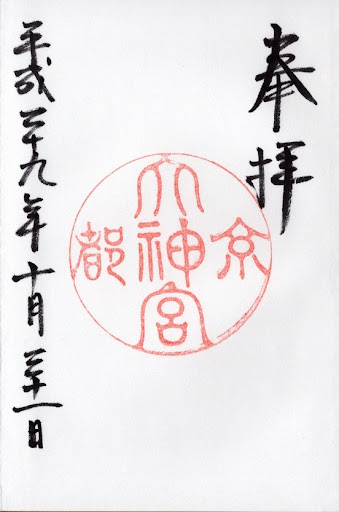 奉拝
京都大神宮
平成二十九年十月三十一日